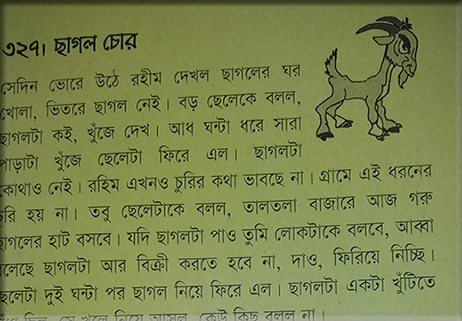 ৩২৭। ছাগল চোর
সেদিন ভোরে উঠে রহীম দেখল ছাগলের ঘর
খোলা, ভিতরে ছাগল নেই। বড় ছেলেকে বলল,
ছাগলটা কই, খুঁজে দেখ। আধ ঘন্টা ধরে সারা
পাড়াটা খুঁজে ছেলেটা ফিরে এল। ছাগলটা
কোথাও নেই। রহিম এখনও চুরির কথা ভাবছে না। গ্রামে এই ধরনের
চুরি হয় না। তবু ছেলেটাকে বলল, তালতলা বাজারে আজ গরু
ছাগলের হাট বসবে। যদি ছাগলটা পাও তুমি লোকটাকে বলবে, আব্বা
বলেছে ছাগলটা আর বিক্রী করতে হবে না, দাও, ফিরিয়ে নিচ্ছি।
ছেলেটা দুই ঘন্টা পর ছাগল নিয়ে ফিরে এল। ছাগলটা একটা খুঁটিতে
ছিল, সে খুলে নিয়ে আসল, কেউ কিছু বলল না।